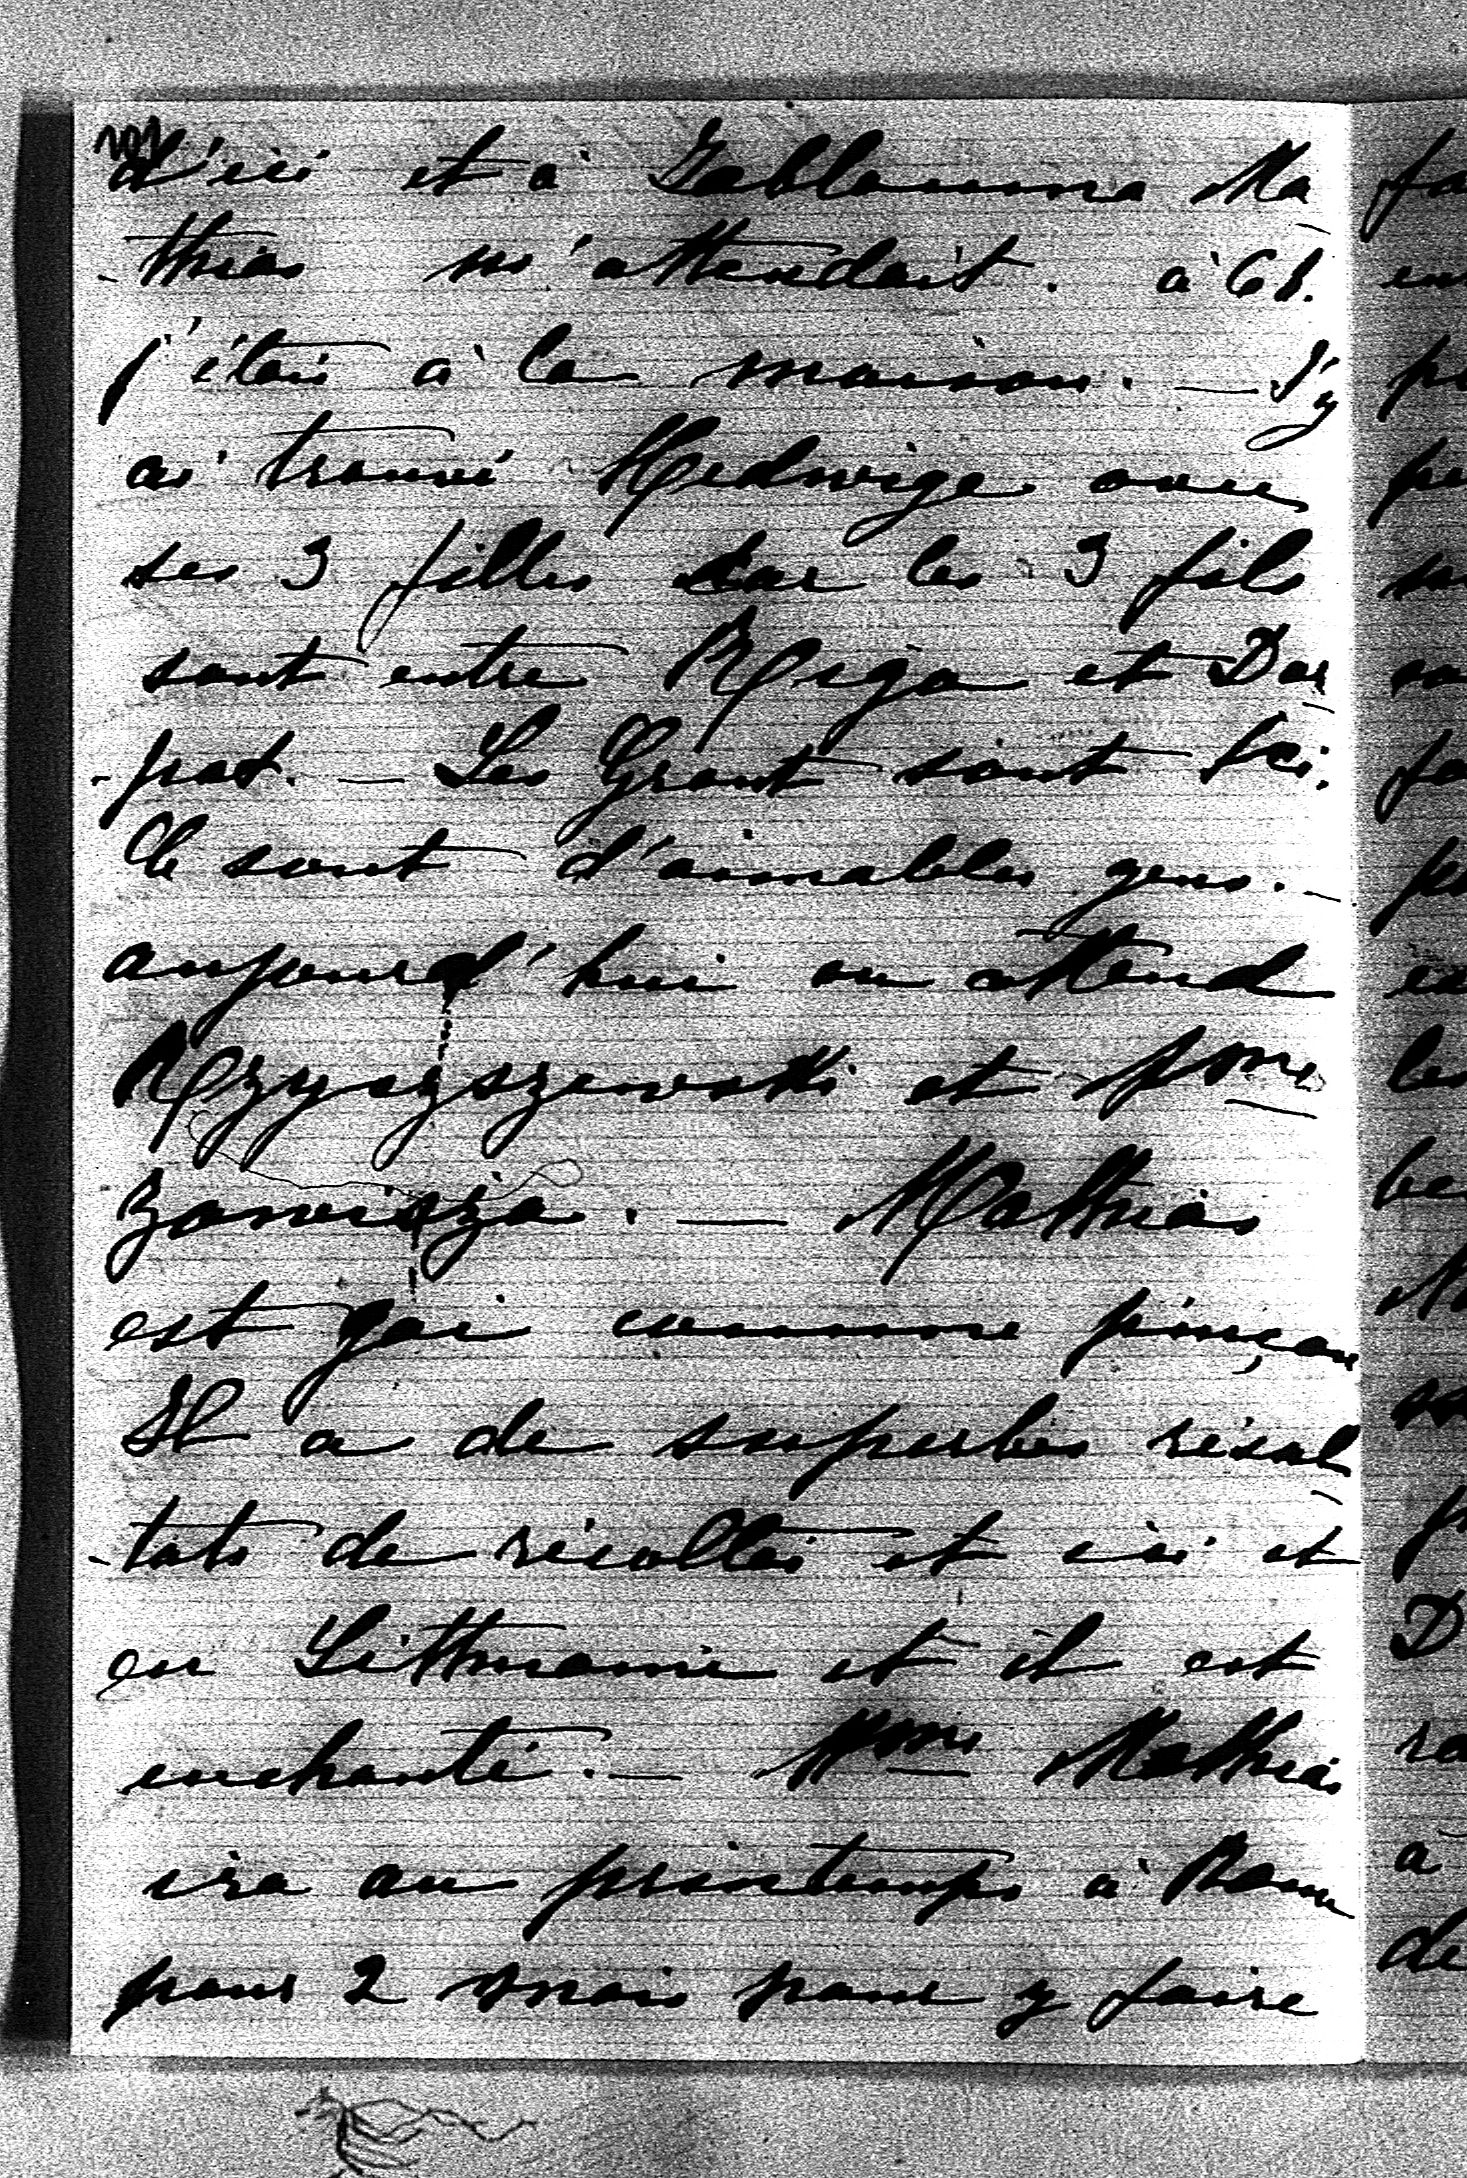 d'ici et à Jablonna Ma
-thias m'attendait. à 6 h.
j'étais à la maison. — J'y
ai trouvé Hedwige avec
ses 3 filles car les 3 fils
sont entre Riga et Dor
-pat. — Les Grant sont ici.
Ce sont d'aimables gens. —
aujourd'hui on attend
Rzyszszewski et
Zawisza. — Mathias
est gai comme pinçon
Il a de superbes résul
-tats de récoltes et ici et
en Litthuanie et il est
enchanté. — Mme Mathias
ira au printemps à Rome
pour 2 mois pour y faire